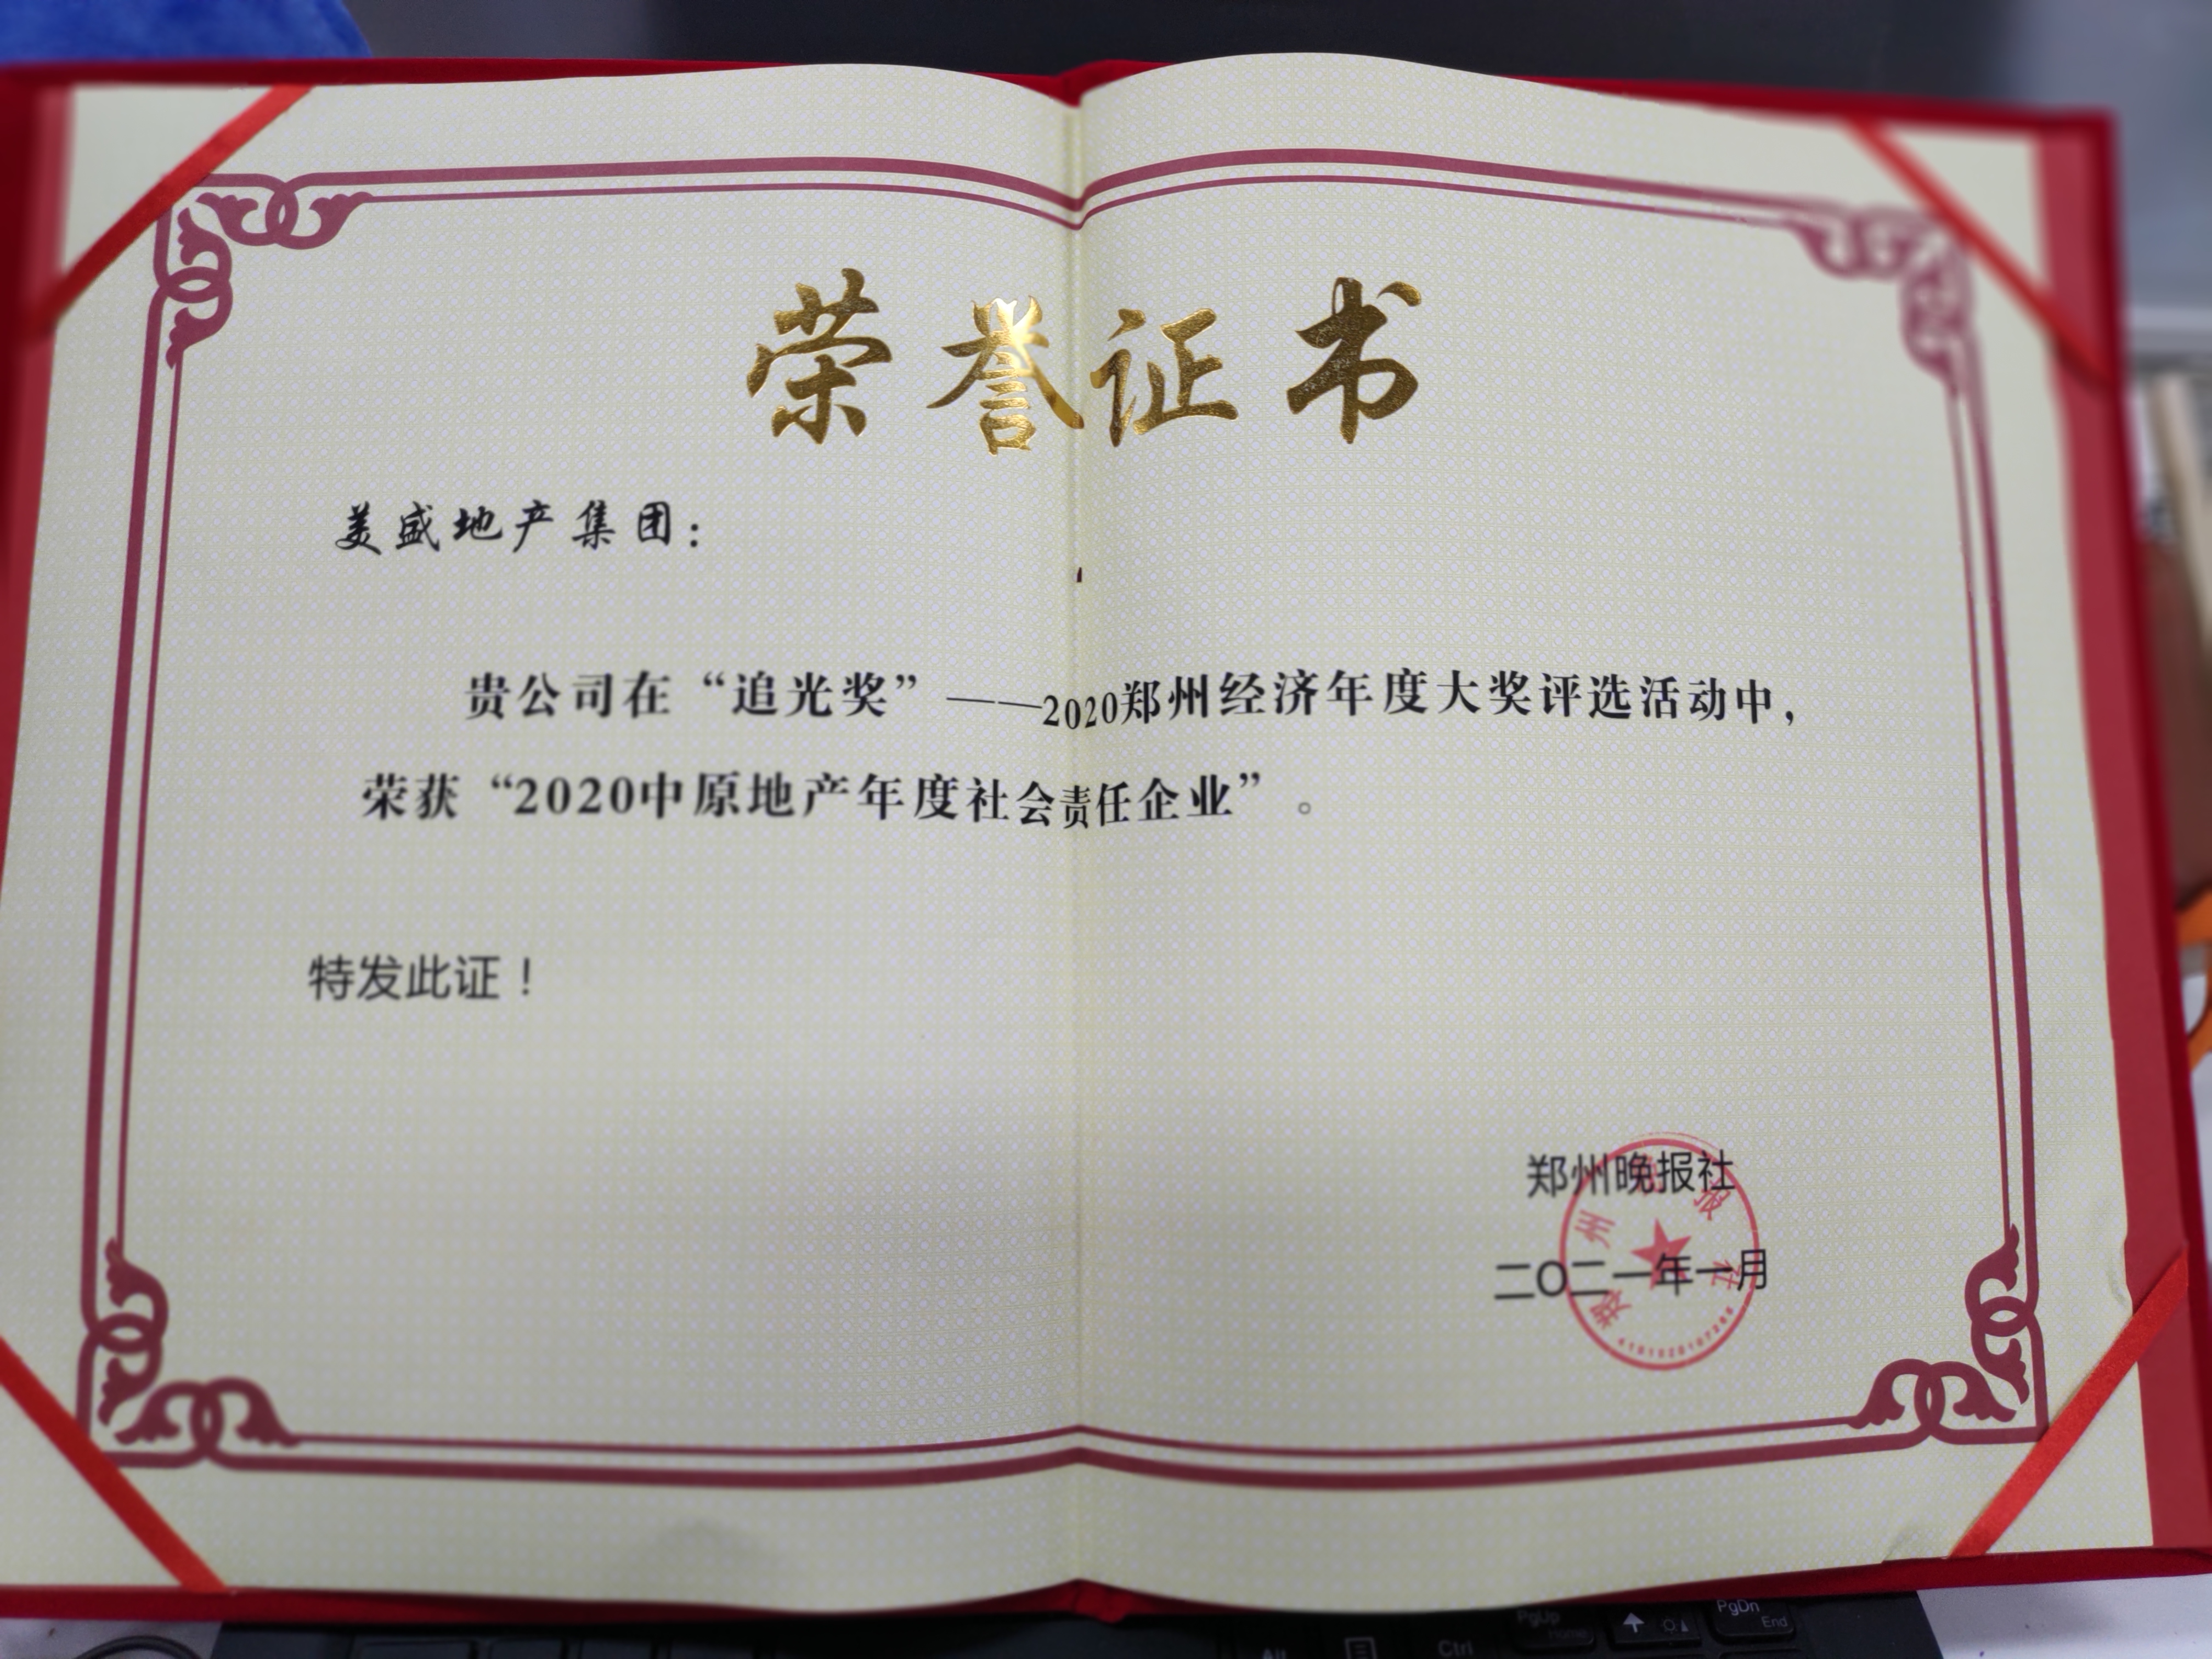 荣誉证书
美盛地产集团：
贵公司在“追光奖”——2020郑州经济年度大奖评选活动中，
荣获“2020中原地产年度社会责任企业”。
特发此证！
郑州晚报社
二〇二一年一月
郑州晚报社
PgUp
Home
PgDn
End
Alt
Ctrl